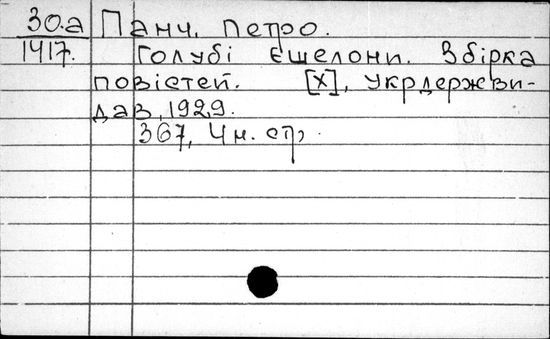 30.а Панч, Петро.
1417. Голубі ешелони. Збірка
повістей. [Х], Укрдержви-
дав, 1929.
367, 4 н. стр.